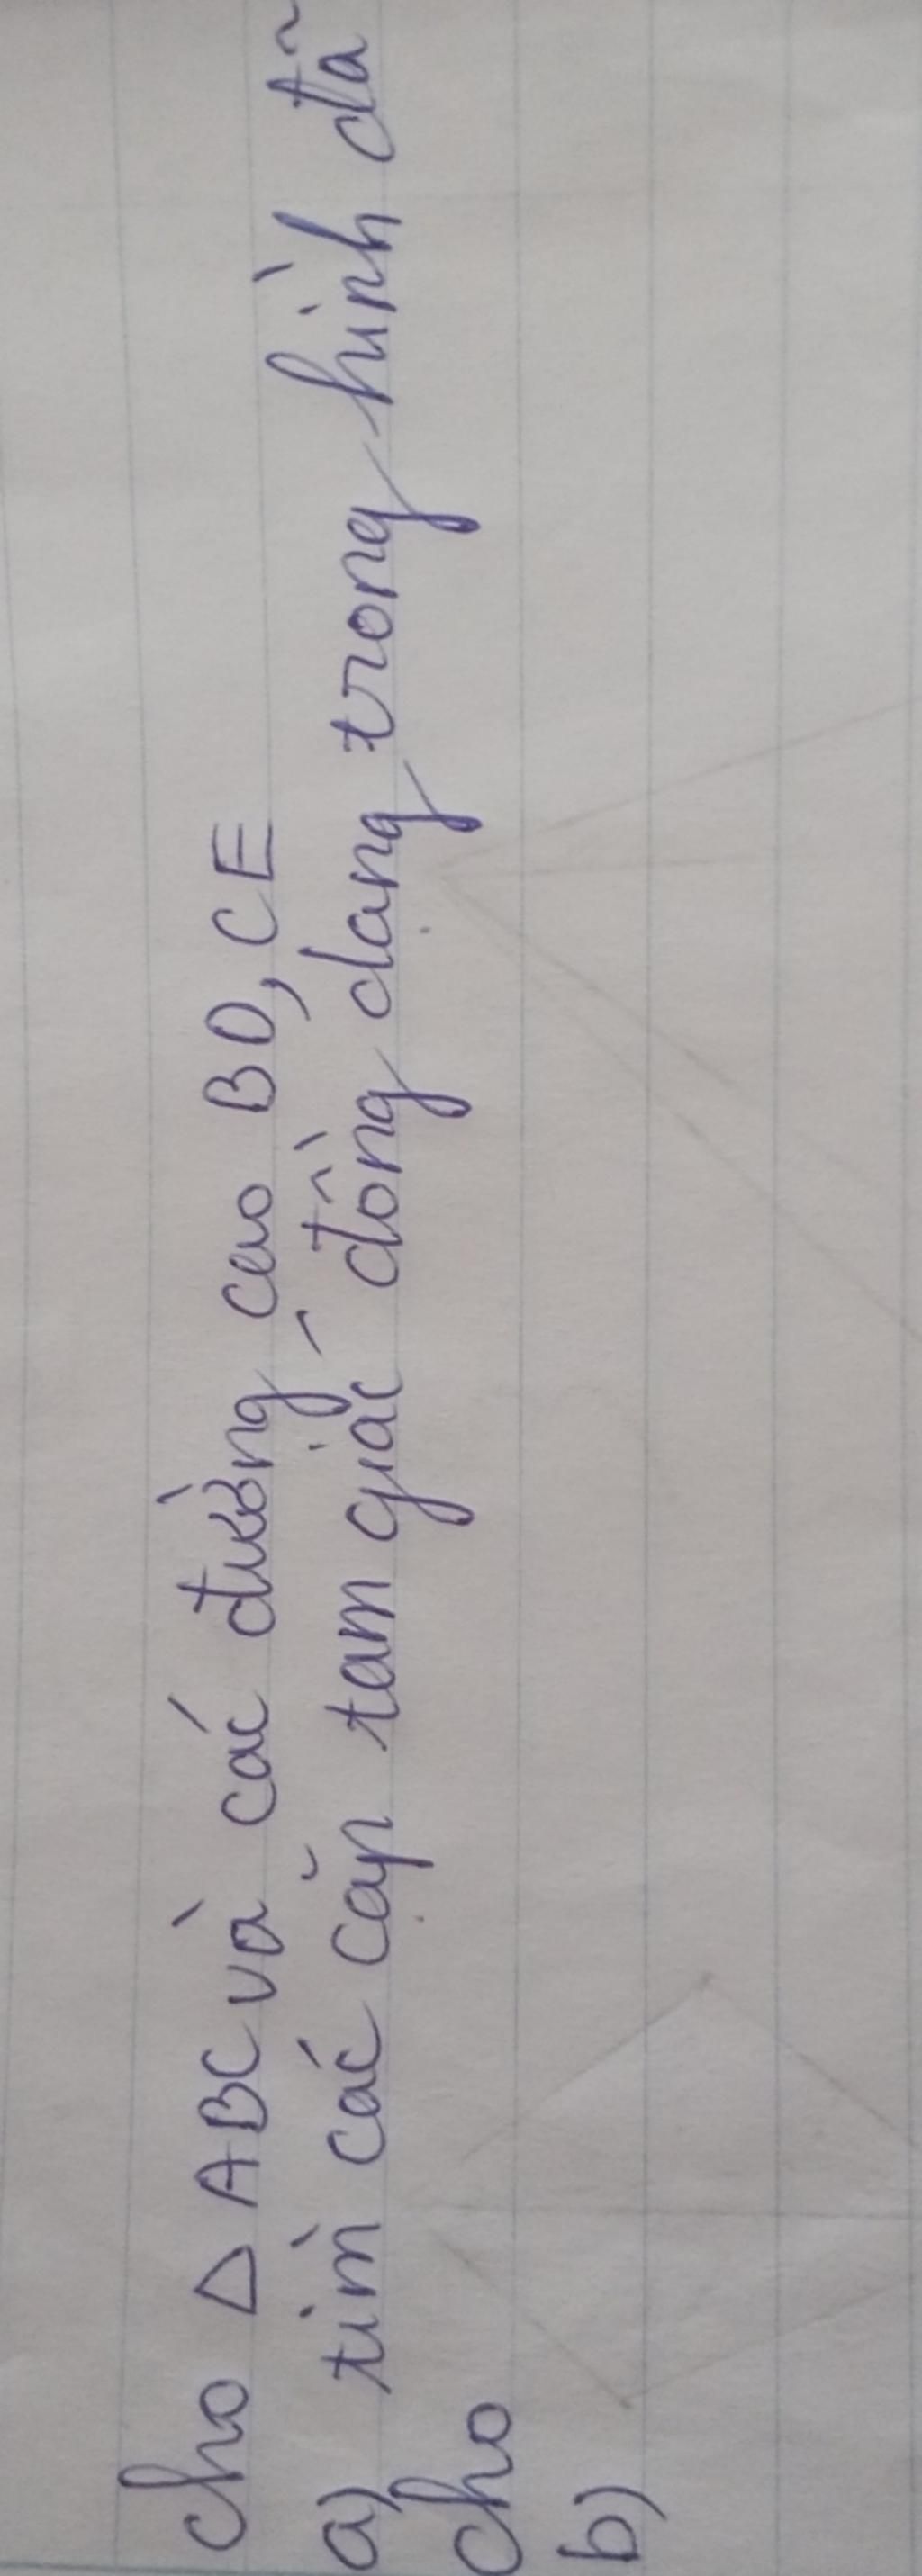 cho Δ ABC và các đường cao BD, CE
a) tìm các cặp tam giác đồng dạng trong hình đã
cho
b)